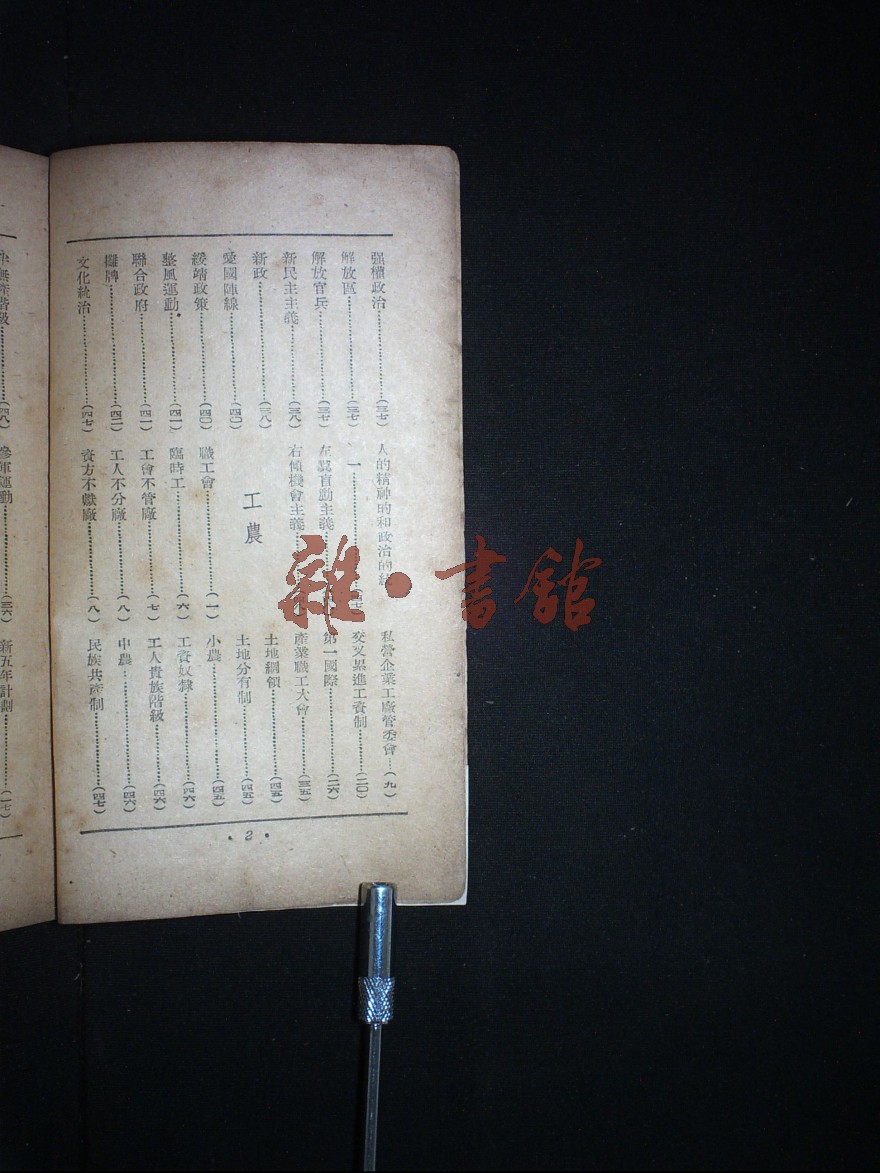 强權政治……(三七)
解放區……(三七)
解放官兵……(三七)
新民主主義……(三八)
新政……(三八)
愛國陣線……(四〇)
綏靖政策……(四〇)
整風運動……(四一)
聯合政府……(四一)
攤牌……(四二)
文化統治……(四七)
人的精神的和政治的統
一……
左翼盲動主義
右傾機會主義
工農
職工會……(一)
臨時工……(六)
工會不管廠……(七)
工人不分廠……(八)
資方不獻廠……(八)
私營企業工廠管委會…(九)
交叉累進工資制……(二〇)
第一國際……(二六)
產業職工大會……(三五)
土地綱領……(四五)
土地分有制……(四五)
小農……(四五)
工資奴隸……(四六)
工人貴族階級……(四六)
中農……(四六)
民族共產制……(四七)
• 2 •
半無產階級……(四八)
參軍運動……(三六)
新五年計劃……(一七)
雜·書館